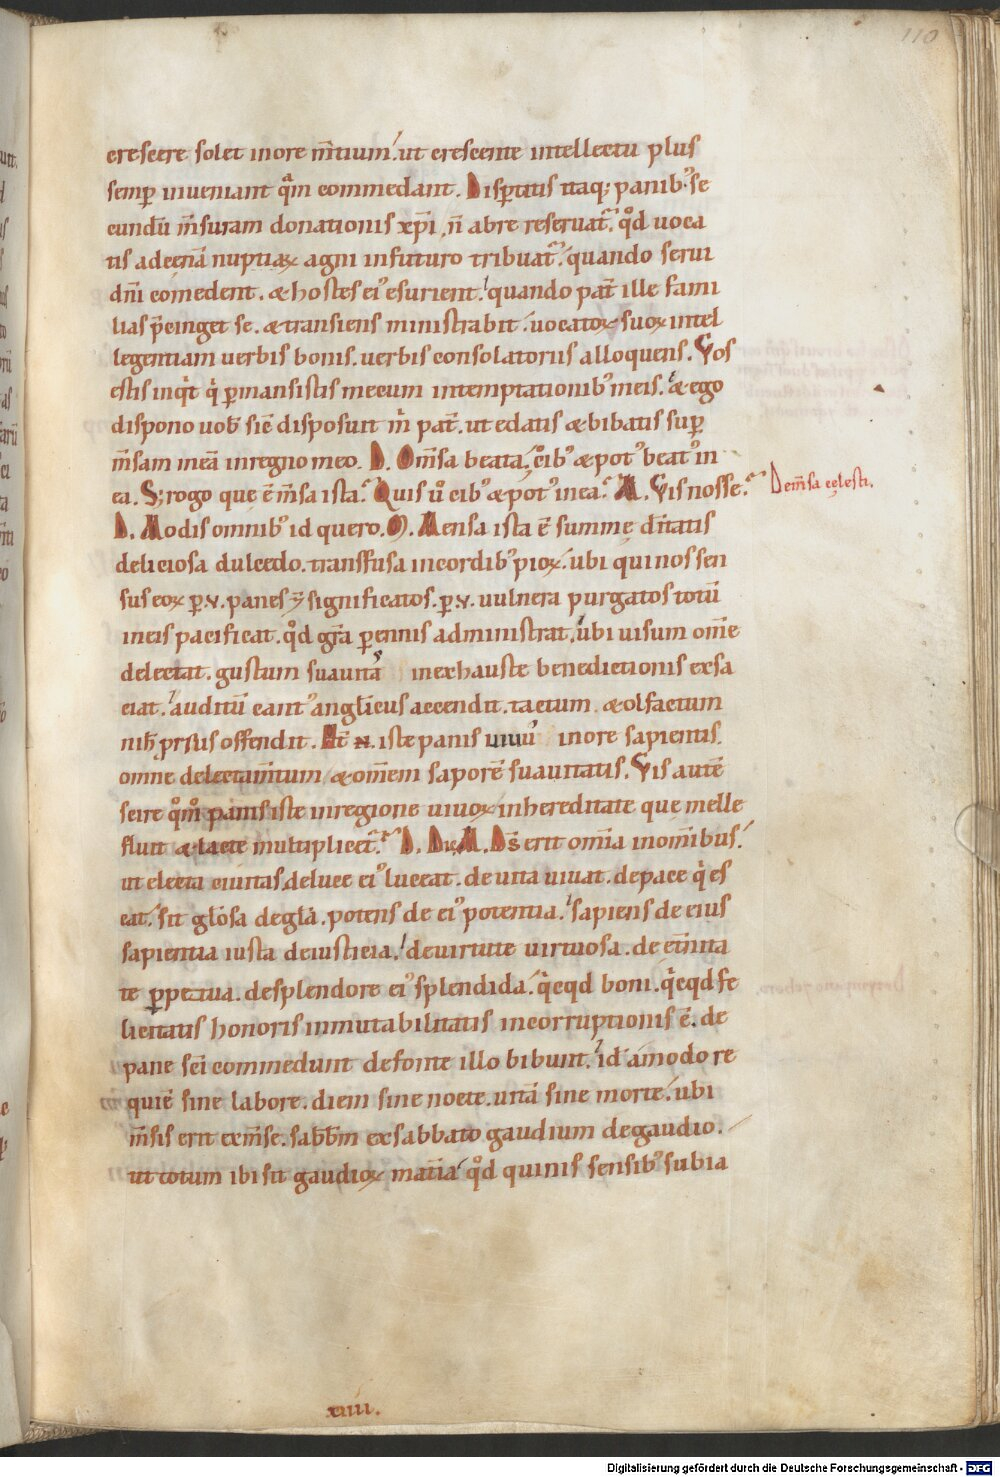 110
crescere solet in ore m̅tium. ut crescente intellectu plus
semp̱ inueniant q̅m commedant. Disp̱titis itaq; panib᾿ se
cundū m̅suram donationis xp̅i, n̅ abre reseruat᷑. qd̊ uoca
tis ad cenā nuptiaꝝ agni in futuro tribuat᷑. quando serui
dn̅i comedent. & hostes ei᾿ esurient. quando pat̅ ille fami
lias p̅cinget se. & transiens ministrabit. uocatoꝝ suoꝝ intel
legentiam uerbis bonis. uerbis consolatoriis alloquens. Vos
estis inqt̅ qi̇ p̱mansistis mecum in temptationib᾿ meis. & ego
dispono uob̅ sic̅ disposuit m̅ pat̅. ut edatis & bibatis sup̱
m̅sam meā in regno meo. D. O m̅sa beata, cib᾿ & pot᾿ beat᾿ in
ea. S; rogo que ē m̅sa ista. Quis u̅ cib᾿ & pot᾿ in ea. M. Vis nosse.
De m̅sa cęlesti.
D. Modis omnib᾿ id quero. M. Mensa ista ē summę di̅tatis
deliciosa dulcedo. transfusa in cordib᾿ pioꝝ. ubi qui nos sen
sus eoꝝ p̱.v. panes significatos. p̱.v. uulnera purgatos totū
in eis pacificat. qd̊ gr̅a p̱ennis administrat. ubi uisum om̅e
delectat. gustum suauita inexhauste benedictionis exsa
ciat. auditū cant᾿ anglicus accendit. tactum & olfactum
nih̅ pṟsus offendit. At̅ n. iste panis uiuū in ore sapientis
omne delectam̅tum & om̅em saporē suauitatis. Vis autē
scire qm̊ panis iste in regione uiuoꝝ in hereditate que melle
fluit & lacte multiplicet᷑. D. Dic. M. D̅s erit om̅ia in om̅ibus.
ut electa ciuitas de luce ei᾿ luceat. de uita uiuat. de pace qi̇es
cat. sit gl̅osa de gl̅a. potens de ei᾿ potentia. sapiens de eius
sapientia iusta de iusticia. de uirtute uirtuosa. de et̅nita
te p̱petua. de splendore ei᾿ splendida. qi̇cqd boni. qi̇cqd fe
licitatis honoris inmutabilitatis incorruptionis ē. de
pane sci̅ commedunt de fonte illo bibunt. id amodo re
quiē sine labore. diem sine nocte. uitā sine morte. ubi
m̅sis erit ex m̅se. sabb̅m ex sabbato gaudium de gaudio.
ut totum ibi sit gaudioꝝ mat̅ia. qd̊ quinis sensib᾿ subia
xiiii.
Digitalisierung gefördert durch die Deutsche Forschungsgemeinschaft - DFG